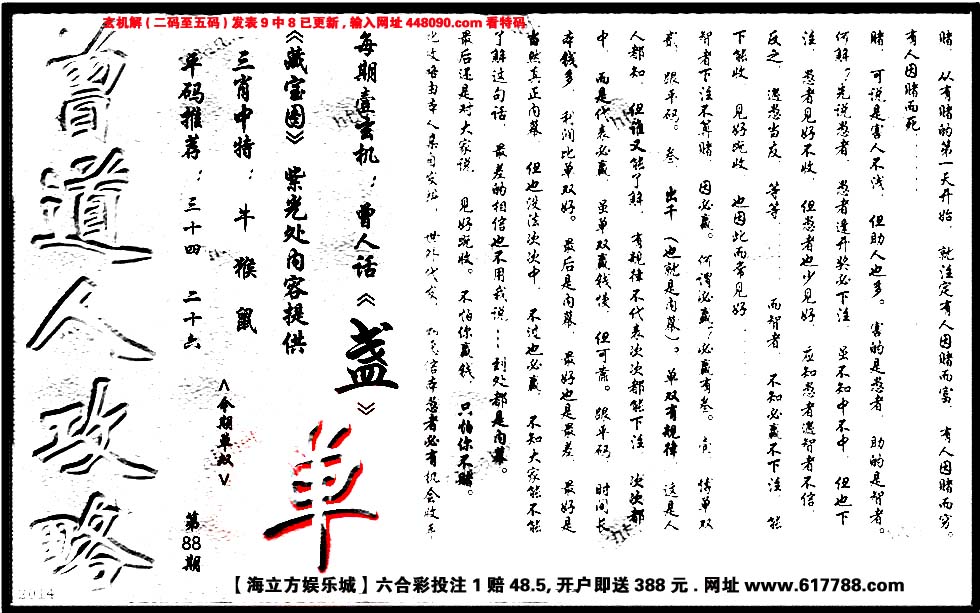 玄机解(二码至五码)发表9中8已更新,输入网址448090.com看特码
赌,从有赌的第一天开始,就注定有人因赌而富,有人因赌而穷。
有人因赌而死......
赌,可说是害人不浅,但助人也多。害的是愚者,助的是智者。
何解?先说愚者,愚者逢开奖必下注,虽不知中不中,但也下
注,愚者见好不收,但愚者也少见好,应知愚者遇智者不信,
反之,遇愚当友,等等......而智者,不知必赢不下注,能
下能收,见好既收,也因此而常见好......
智者下注不算赌,因必赢。何谓必赢?必赢有叁。壹,情单双
贰,跟平码。叁,出千(也就是内幕)。单双有规律,这是人
人都知,但谁又能了解,有规律不代表次次都能下注,次次都
中,而是代表必赢,虽单双赢钱慢,但可靠。跟平码,时间长
本钱多,利润比单双好。最后是内幕,最好也是最差,最好是
当然真正内幕,但也没法次次中,不过也必赢,不知大家能不能
了解这句话,最差的相信也不用我说...到处都是内幕。
最后还是对大家说,见好既收。不怕你赢钱,只怕你不赌。
每期壹玄机:曾人话《盏》
《藏宝图》紫光处内容提供
三肖中特:牛 猴 鼠
单码推荐:三十四 二十六
<今期单双>
单
第88期
曾道人攻略
2014
【海立方娱乐城】六合彩投注1赔48.5,开户即送388元.网址www.617788.com